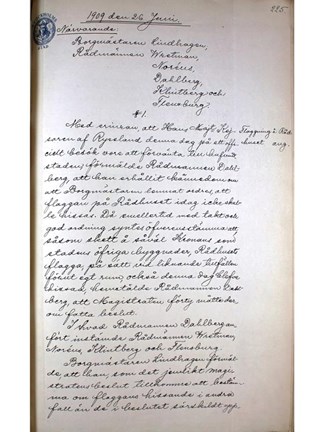 225.
1909 den 26 Juni.
Närvarande:
Borgmästaren Lindhagen,
Rådmännen Westman,
Norèus,
Dahlberg,
Klintberg och
Flensburg.
§ 1.
Med erinran, att Hans Maj:t Kej-
saren af Ryssland denna dag på ett offi-
ciellt besök vore att förvänta till hufvud-
staden, förmälde Rådmannen Dahl-
berg, att han erhållit kännedom om
att Borgmästaren lemnat order, att
flaggan på Rådhuset idag icke skul-
le hissas. Då emellertid med takt och
god ordning syntes öfverensstämma att
såsom skett å såväl Kronans som
stadens öfriga byggnader, Rådhusets
flagga, på sätt vid liknande tillfällen
förut egt rum, också denna dag blefve
hissad, hemstälde Rådmannen Dahl-
berg, att Magistraten förty måtte der-
om fatta beslut.
I hvad Rådmannen Dahlberg an-
fört instämde Rådmännen Westman,
Norèus, Klintberg och Flensburg.
Borgmästaren Lindhagen förmäl-
de, att han, som det jemlikt magi-
stratens beslut tillkomme att bestäm-
ma om flaggans hissande i andra
fall än de i beslutet särskildt upp-
Flaggning å Råd-
huset